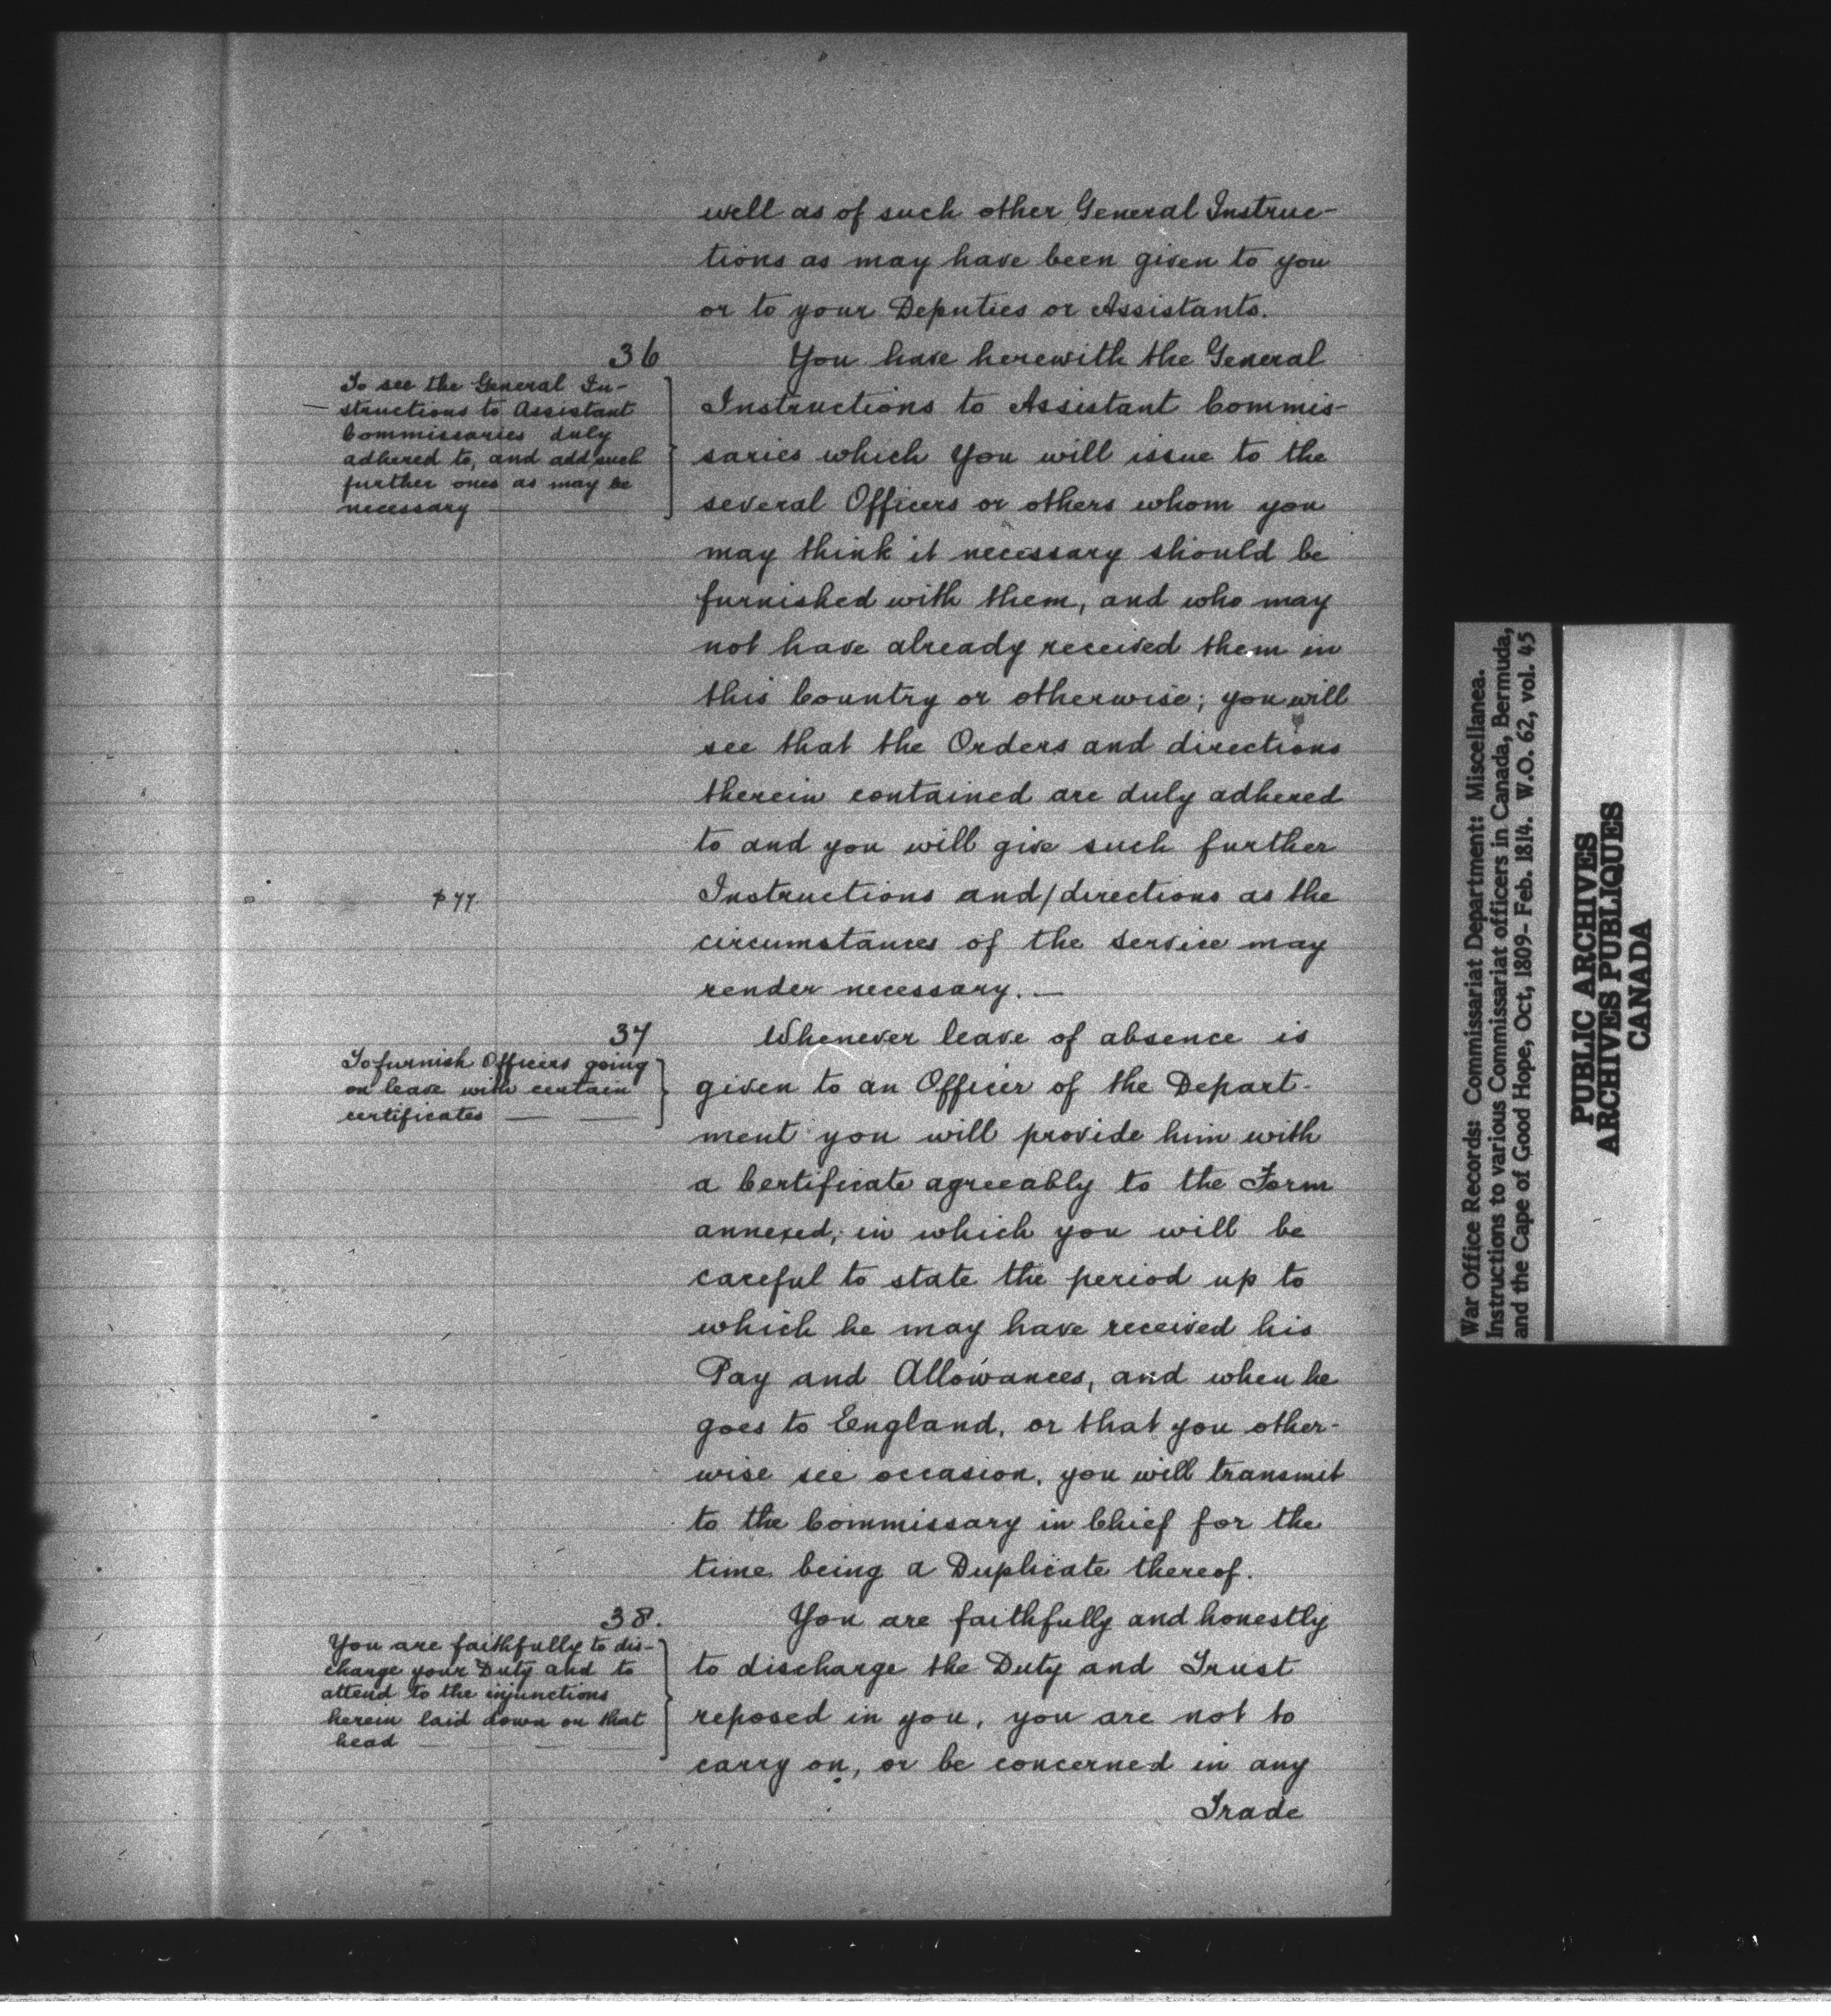 well as of such other General Instruc-
tions as may have been given to you
or to your Deputies or Assistants.
36
To see the General In-
structions to Assistant
Commissaries duly
adhered to, and add such
further ones as may be
necessary
You have herewith the General
Instructions to Assistant Commis-
saries which you will issue to the
several Officers or others whom you
may think it necessary should be
furnished with them, and who may
not have already received them in
this Country or otherwise; you will
see that the Orders and directions
therein contained are duly adhered
to and you will give such further
p 77.
Instructions and/directions as the
circumstances of the service may
render necessary. —
37
To furnish Officers going
on leave with certain
certificates
Whenever leave of absence is
given to an Officer of the Depart-
ment you will provide him with
a Certificate agreeably to the Form
annexed, in which you will be
careful to state the period up to
which he may have received his
Pay and Allowances, and when he
goes to England, or that you other-
wise see occasion, you will transmit
to the Commissary in Chief for the
time being a Duplicate thereof.
38.
You are faithfully to dis-
charge your Duty and to
attend to the injunctions
herein laid down on that
head
You are faithfully and honestly
to discharge the Duty and Trust
reposed in you, you are not to
carry on, or be concerned in any
Trade
War Office Records: Commissariat Department: Miscellanea.
Instructions to various Commissariat officers in Canada, Bermuda,
and the Cape of Good Hope, Oct, 1809- Feb. 1814. W.O. 62, vol. 45
PUBLIC ARCHIVES
ARCHIVES PUBLIQUES
CANADA